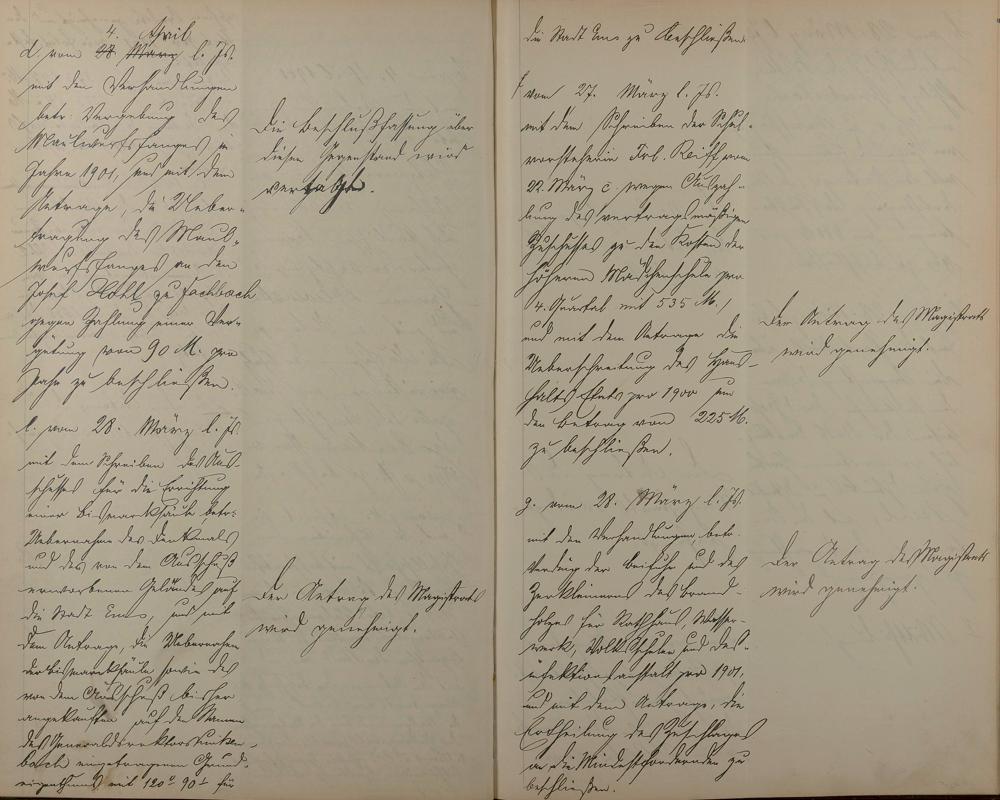 4. April
d. vom 28. März l. Js.
mit den Verhandlungen
betr. Vergebung des
Maulwurfsfanges im
Jahre 1901, und mit dem
Antrage, die Ueber-
tragung des Maul-
wurfsfanges an den
Josef Hohl zu Fachbach
gegen Zahlung einer Ver-
gütung von 90 M. pro
Jahr zu beschließen.
Die Beschlußfassung über
diesen Gegenstand wird
vertagt.
e. vom 28. März l. Js.
mit dem Schreiben des Aus-
schusses für die Errichtung
einer Bismarksäule, betr.
Uebernahme des Denkmals
und des von dem Ausschuß
erworbenen Geländes auf
die Stadt Ems, und mit
dem Antrage, die Uebernahme
der Bismarksäule sowie des
von dem Ausschuß bisher
angekauften auf den Namen
des Generaldirektors Linken-
bach eingetragenen Grund-
eigenthums mit 120 90 für
Der Antrag des Magistrats
wird genehmigt.
die Stadt Ems zu beschließen.
f. vom 27. März l. Js.
mit dem Schreiben der Schul-
vorsteherin Frl. Reiff vom
22. März c. wegen Auszah-
lung des vertragsmäßigen
Zuschusses zu den Kosten der
höheren Mädchenschule pro
4. Quartal mit 535 M.,
und mit dem Antrage die
Ueberschreitung des Haus-
halts Etats pro 1900 um
den Betrag von 225 M.
zu beschließen.
Der Antrag des Magistrats
wird genehmigt.
g. vom 28. März l. Js.
mit den Verhandlungen betr.
Verding der Beifuhr und des
Zerkleinerns des Brand-
holzes für Rathhaus, Wasser-
werk, Volksschulen und Des-
infektionsanstalt pro 1901,
und mit dem Antrage, die
Ertheilung des Zuschlages
an die Mindestfordernden zu
beschließen.
Der Antrag des Magistrats
wird genehmigt.